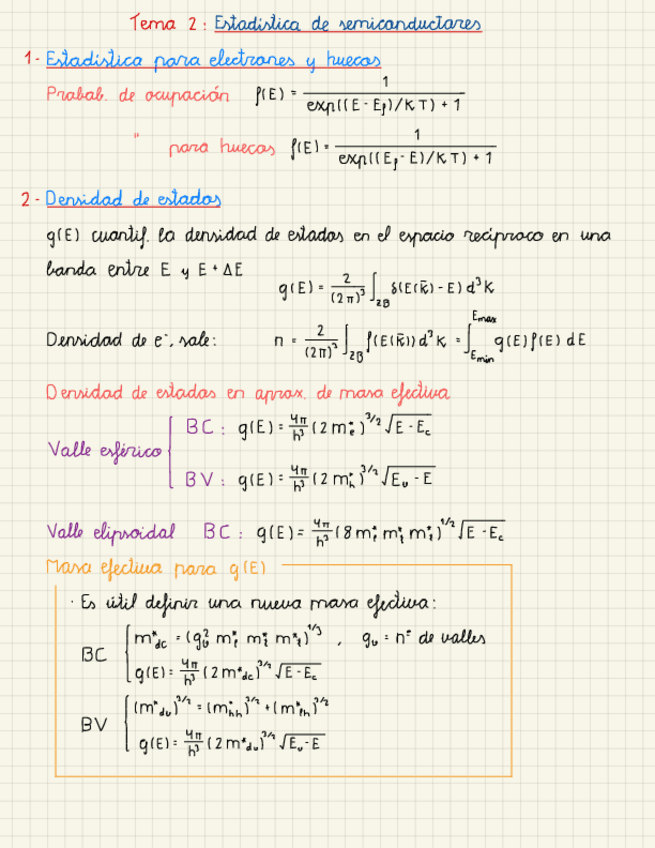 Tema 2: Estadística de semiconductores
1- Estadística para electrones y huecos
Probab. de ocupación f(E) = 1 / (exp((E - E_f)/KT) + 1)
" para huecos f(E) = 1 / (exp((E_f - E)/KT) + 1)
2- Densidad de estados
g(E) cuantif. la densidad de estados en el espacio recíproco en una
banda entre E y E + ΔE
g(E) = 2/(2π)³ ∫_ZB δ(E(k̄) - E) d³K
Densidad de e⁻, sale: n = 2/(2π)³ ∫_ZB f(E(k̄)) d³K = ∫_Emin^Emax g(E) f(E) dE
Densidad de estados en aprox. de masa efectiva
Valle esférico
BC: g(E) = 4π/h³ (2 m_e*)^3/2 √(E - E_c)
BV: g(E) = 4π/h³ (2 m_h*)^3/2 √(E_v - E)
Valle elipsoidal BC: g(E) = 4π/h³ (8 m_l* m_t* m_t*)^1/2 √(E - E_c)
Masa efectiva para g(E)
· Es útil definir una nueva masa efectiva:
BC
m*_dc = (g_v² m_l* m_t* m_t*)^1/3 , g_v = nº de valles
g(E) = 4π/h³ (2 m*_dc)^3/2 √(E - E_c)
BV
(m*_dv)^3/2 = (m*_hh)^3/2 + (m*_lh)^3/2
g(E) = 4π/h³ (2 m*_dv)^3/2 √(E_v - E)